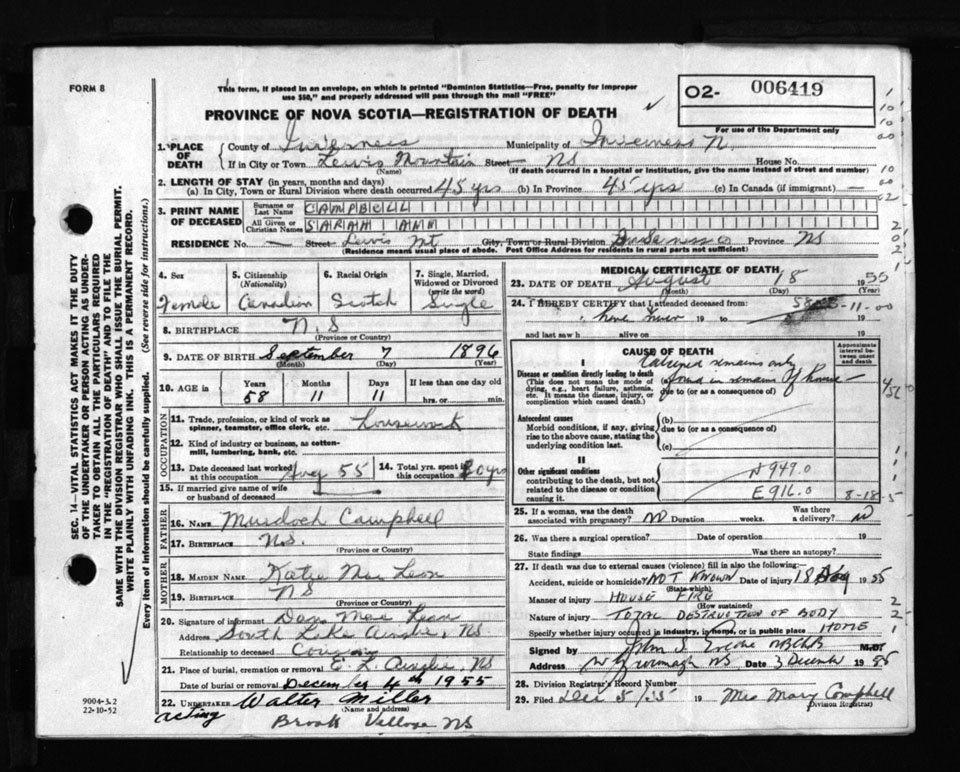 FORM 8
This form, if placed in an envelope, on which is printed "Dominion Statistics—Free, penalty for improper
use $50," and properly addressed will pass through the mail "FREE"
02- 006419
For use of the Department only
PROVINCE OF NOVA SCOTIA—REGISTRATION OF DEATH
1. PLACE OF DEATH
County of Inverness Municipality of Inverness N.
If in City or Town Lewis Mountain Street NS House No.
(Name) (If death occurred in a hospital or institution, give the name instead of street and number)
2. LENGTH OF STAY (in years, months and days)
(a) In City, Town or Rural Division where death occurred 45 yrs (b) In Province 45 yrs (c) In Canada (if immigrant) —
3. PRINT NAME OF DECEASED
Surname or Last Name CAMPBELL
All Given or Christian Names SARAH ANN
RESIDENCE No. — Street Lewis Mt City, Town or Rural Division Inverness Co Province NS
(Residence means usual place of abode. Post Office Address for residents in rural parts not sufficient)
4. Sex Female
5. Citizenship (Nationality) Canadian
6. Racial Origin Scotch
7. Single, Married, Widowed or Divorced (write the word) Single
8. BIRTHPLACE N.S
(Province or Country)
9. DATE OF BIRTH September 7 1896
(Month) (Day) (Year)
10. AGE in Years 58 Months 11 Days 11 If less than one day old hrs. or min.
OCCUPATION
11. Trade, profession, or kind of work as spinner, teamster, office clerk, etc. housework
12. Kind of industry or business, as cotton-mill, lumbering, bank, etc.
13. Date deceased last worked at this occupation Aug 55
14. Total yrs. spent in this occupation yrs
15. If married give name of wife or husband of deceased
FATHER
16. NAME Murdoch Campbell
17. BIRTHPLACE N.S.
(Province or Country)
MOTHER
18. MAIDEN NAME Katye Mac Lean
19. BIRTHPLACE NS
(Province or Country)
20. Signature of informant Mac Lean
Address South Lake Ainslie, NS
Relationship to deceased Cousin
21. Place of burial, cremation or removal E L Ainslie, NS
Date of burial or removal December 4th 1955
22. UNDERTAKER Walter Miller
acting (Name and address)
Brook Village NS
MEDICAL CERTIFICATE OF DEATH
23. DATE OF DEATH August 18 1955
(Month) (Day) (Year)
24. I HEREBY CERTIFY that I attended deceased from
have never 19 to 19
and last saw h alive on 19
58-11-00
CAUSE OF DEATH
Approximate interval between onset and death
I
Disease or condition directly leading to death
(This does not mean the mode of dying, e.g., heart failure, asthenia, etc. It means the disease, injury, or complication which caused death.)
remains only
(a) found in remains of house
due to (or as a consequence of)
Antecedent causes
Morbid conditions, if any, giving rise to the above cause, stating the underlying condition last.
(b)
due to (or as a consequence of)
(c)
II
Other significant conditions
contributing to the death, but not related to the disease or condition causing it.
N949.0
E916.0
8-18-5
25. If a woman, was the death associated with pregnancy? NO Duration weeks. Was there a delivery? NO
26. Was there a surgical operation? Date of operation 19
State findings Was there an autopsy?
27. If death was due to external causes (violence) fill in also the following:—
Accident, suicide or homicide? NOT KNOWN Date of injury 18 Aug 1955
(State which)
Manner of injury HOUSE FIRE
(How sustained)
Nature of injury TOTAL DESTRUCTION OF BODY
Specify whether injury occurred in industry, in home, or in public place HOME
Signed by John S. M.D.
Address NS Date 3 December 1955
28. Division Registrar's Record Number
29. Filed Dec 5/55 19 Mrs Mary Campbell
Division Registrar
SEC. 14—VITAL STATISTICS ACT MAKES IT THE DUTY
OF THE UNDERTAKER OR PERSON ACTING AS UNDER-
TAKER TO OBTAIN ALL THE PARTICULARS REQUIRED
IN THE "REGISTRATION OF DEATH" AND TO FILE THE
SAME WITH THE DIVISION REGISTRAR WHO SHALL ISSUE THE BURIAL PERMIT.
WRITE PLAINLY WITH UNFADING INK. THIS IS A PERMANENT RECORD.
Every item of information should be carefully supplied. (See reverse side for instructions.)
9004-3.2
22-10-52